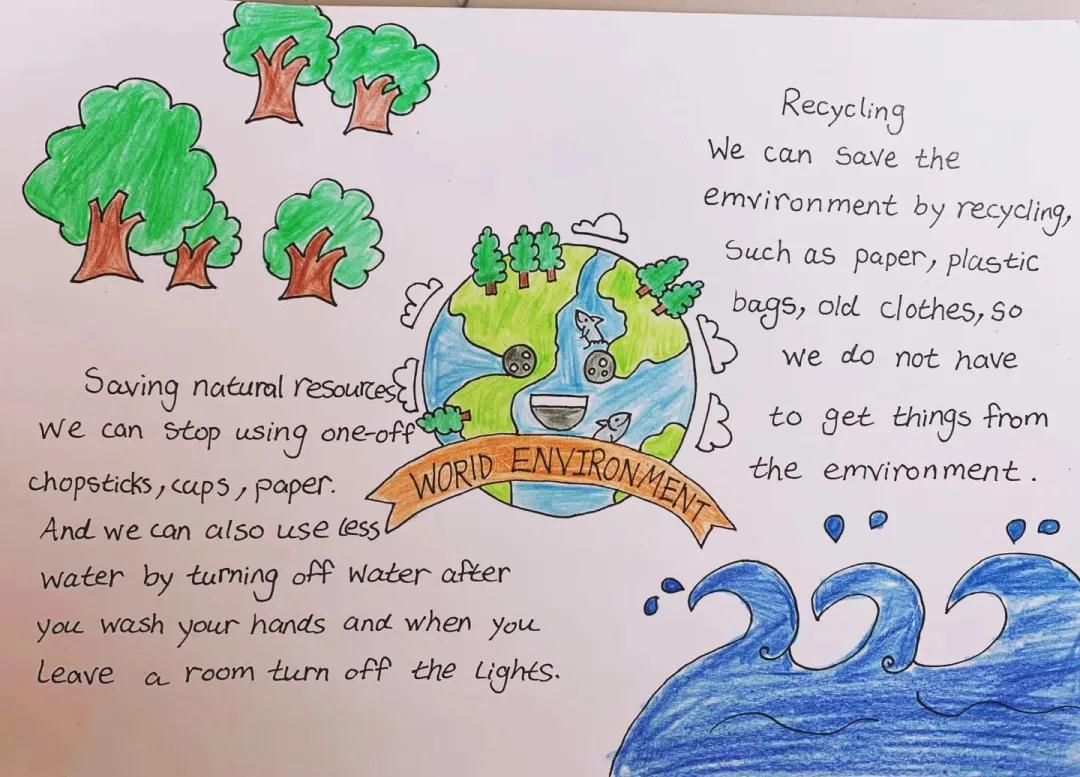 Recycling
We can save the
emvironment by recycling,
such as paper, plastic
bags, old clothes, so
we do not have
to get things from
the emvironment.
WORID ENVIRONMENT
Saving natural resources
We can stop using one-off
chopsticks, cups, paper.
And we can also use less
water by turning off water after
you wash your hands and when you
leave a room turn off the lights.